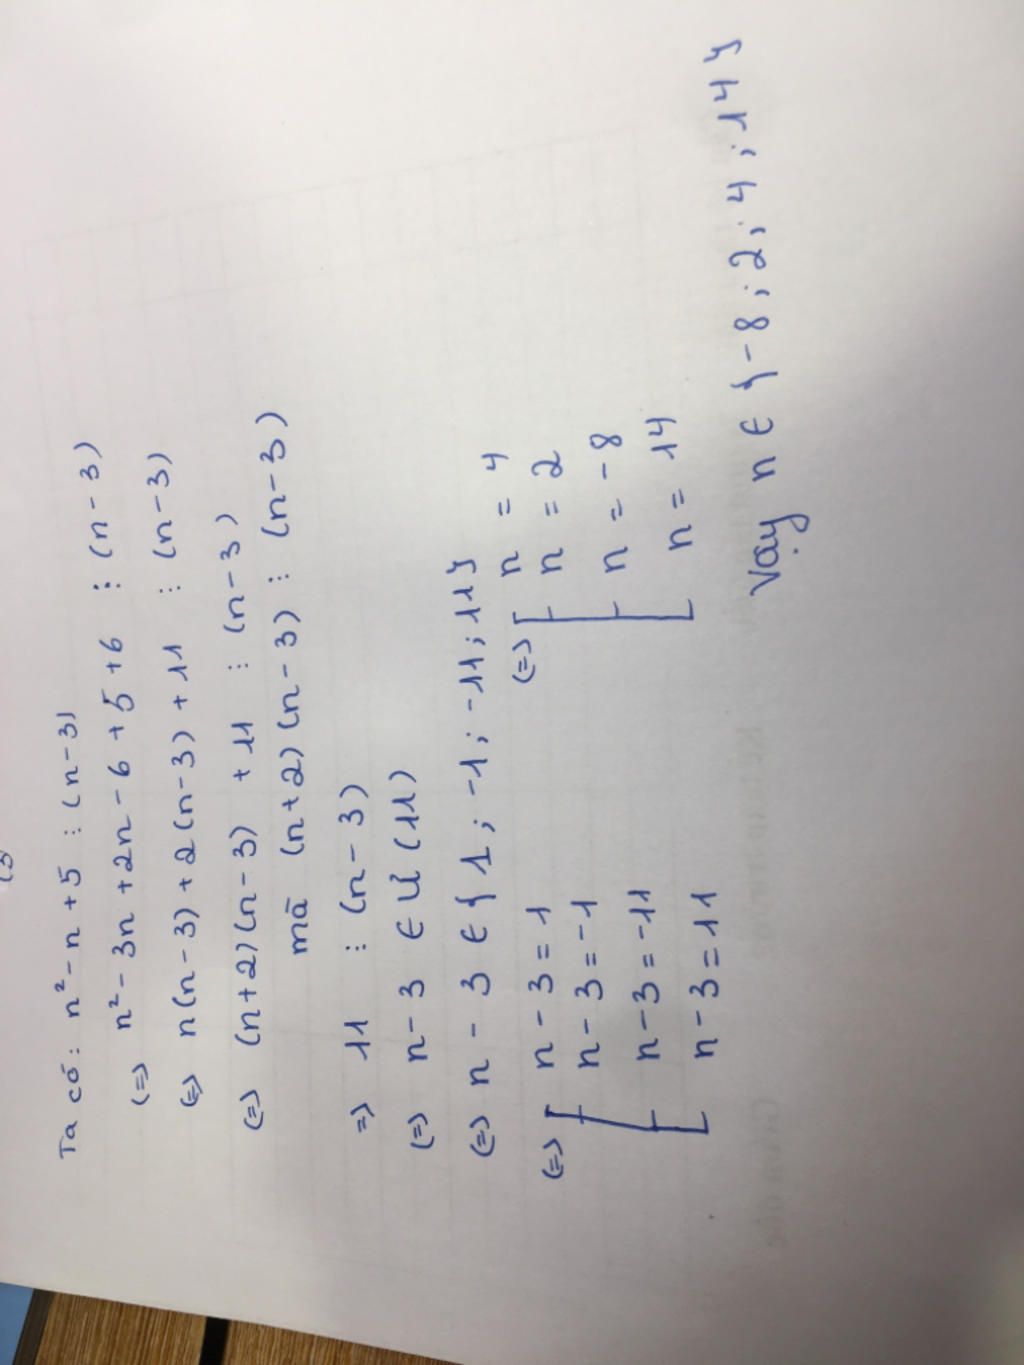 Ta có: n² - n + 5 ⋮ (n-3)
(=) n² - 3n + 2n - 6 + 5 + 6 ⋮ (n - 3)
(=) n(n-3) + 2(n-3) + 11 ⋮ (n-3)
(=) (n+2)(n-3) + 11 ⋮ (n-3)
mà (n+2)(n-3) ⋮ (n-3)
=) 11 ⋮ (n-3)
(=) n-3 ∈ Ư(11)
(=) n - 3 ∈ {1; -1; -11; 11}
(=) [ n-3=1 (=) [ n = 4
n-3=-1 n = 2
n-3=-11 n = -8
n-3=11 n = 14
Vậy n ∈ {-8; 2; 4; 14}